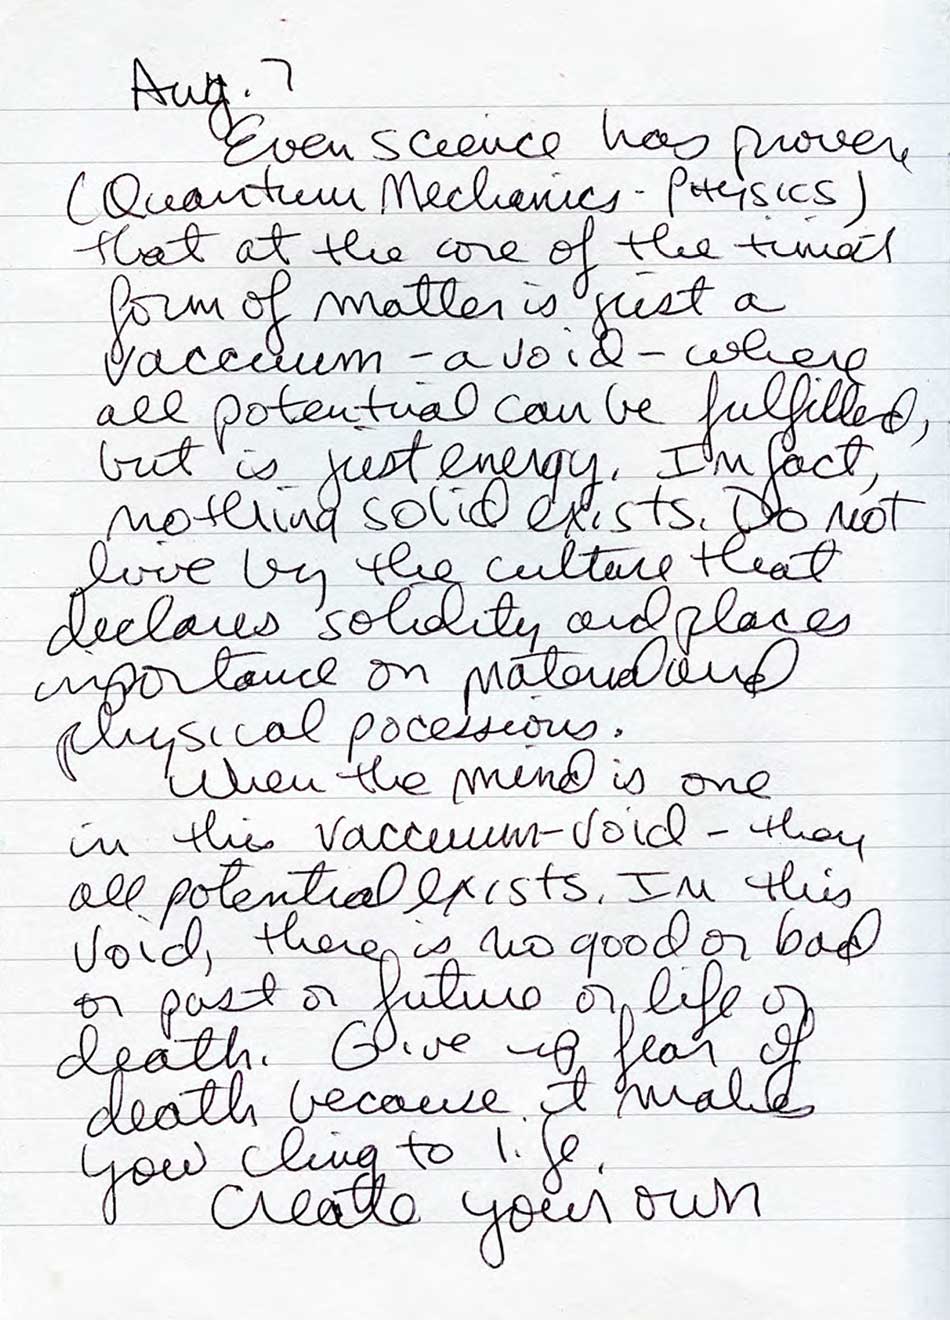 Aug. 7
Even science has proven
(Quantum Mechanics - PHYSICS)
that at the core of the tiniest
form of matter is just a
vaccuum - a void - where
all potential can be fulfilled,
but is just energy. In fact,
nothing solid exists. Do not
live by the culture that
declares solidity and places
importance on material and
physical pocessions.
When the mind is one
in this vaccuum-void - then
all potential exists. In this
void, there is no good or bad
or past or future or life or
death. Give up fear of
death because it makes
you cling to life.
Create your own